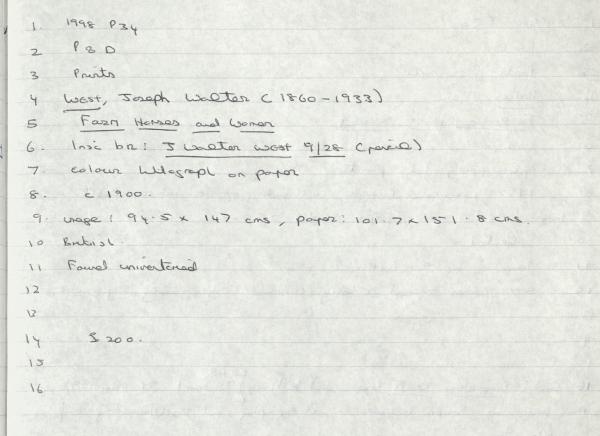 1. 1998 P34
2 P & D
3 Prints
4 West, Joseph Walter (1860-1933)
5 Farm Horses and Women
6. Insc br: J Walter West 9/28 (pencil)
7. colour lithograph on paper
8. c 1900.
9. image: 94.5 x 147 cms, paper: 101.7 x 151.8 cms.
10 British
11 Found uninventoried
12
13
14 200.
15
16